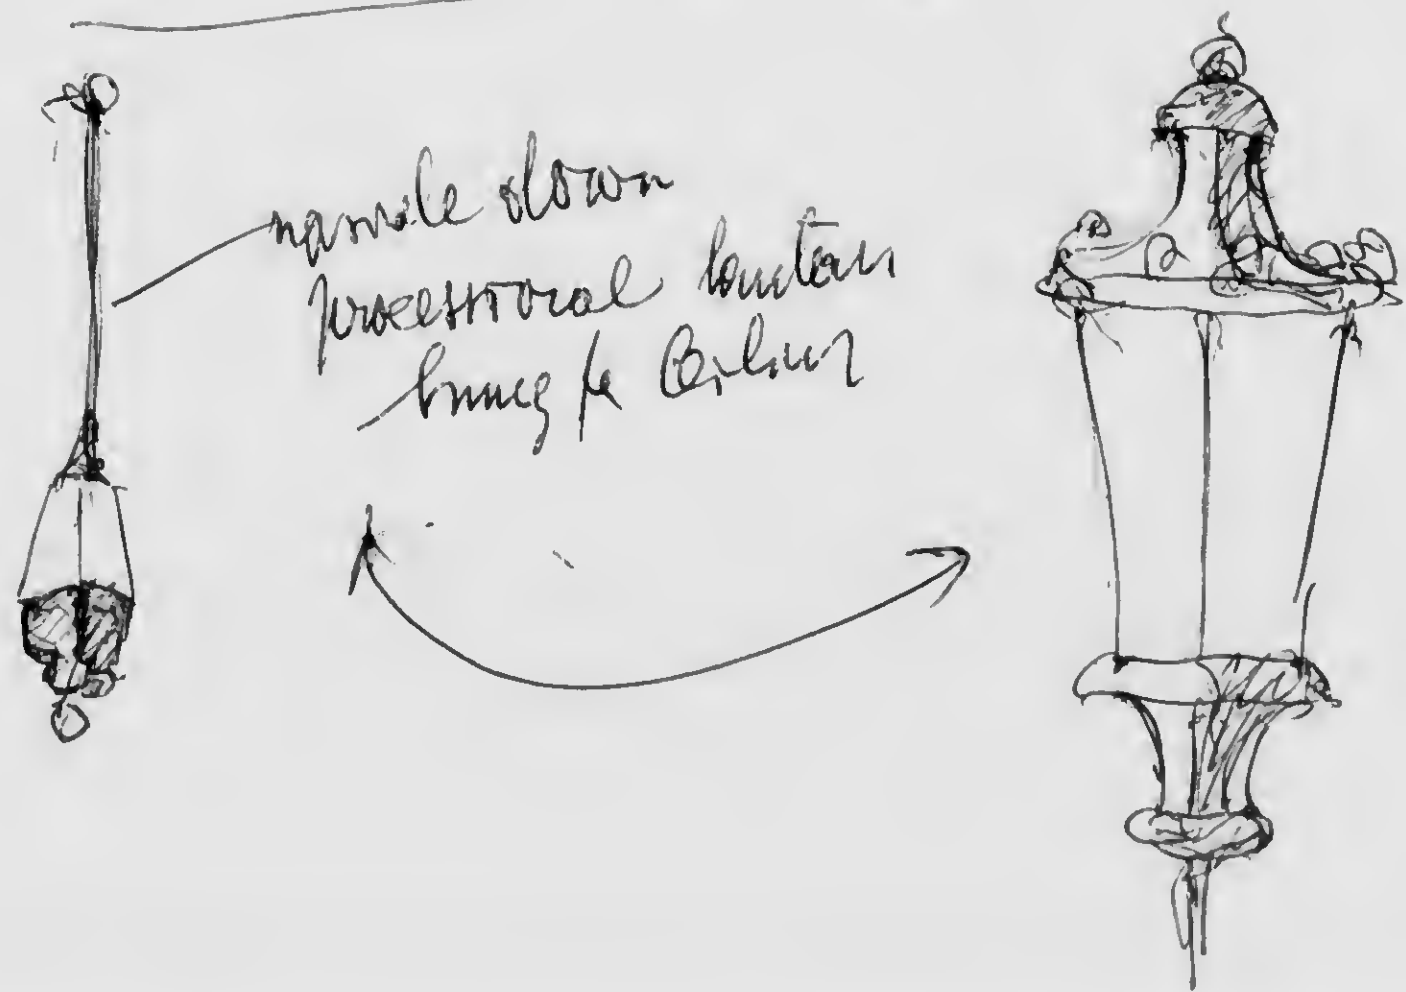 down
processional lantern
hung to Ceiling